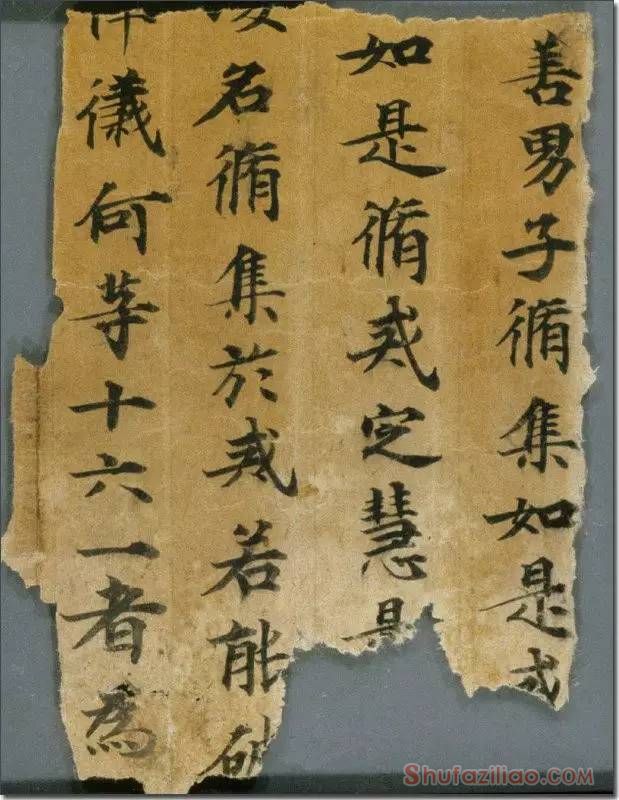 善男子脩集如是戒
如是脩戒定慧
名脩集於戒若能破
律儀何等十六一者為
Shufaziliao.com